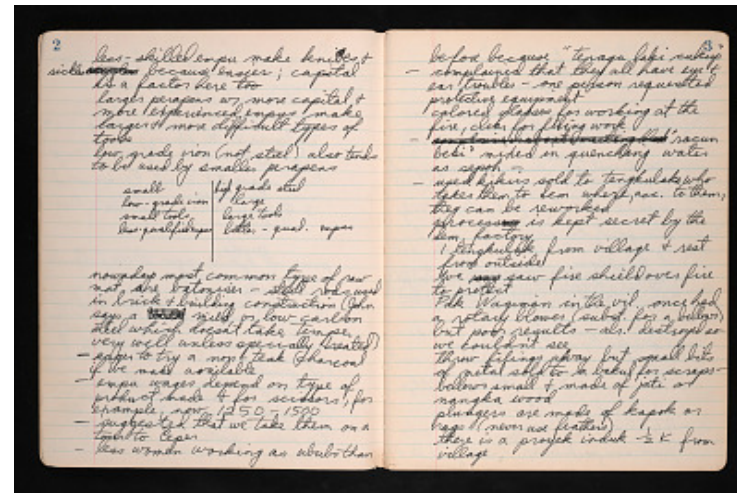 2
less-skilled empu make knives &
sickles because easier; capital
is a factor here too
larger perapens w/ more capital &
more experienced empus make
larger & more difficult types of
tools
low grade iron (not steel) also tends
to be used by smaller perapens
small | high grade steel
low-grade iron | large
small tools | large tools
less-qualified empus | better-qual. empus
nowadays most common type of raw
mat. are betoniser - steel rods used
in brick & building construction (John
says a mild or low carbon
steel which doesn't take temper
very well unless specially treated)
- eager to try a non-teak charcoal
if we make available
- empu wages depend on type of
product made & for scissors, for
example now 1250-1500
- suggested that we take them on a
tour to Ceper
- less women working as ububs than
3
before because "tenaga laki cukup"
- complained that they all have eye &
ear troubles - one person requested
protective equipment
colored glasses for working at the
fire, clear for filing work
- "racun
besi" mixed in quenching water
as sepoh -
- used kikirs sold to tengkulaks who
takes them to Sem where, acc. to them,
they can be reworked
process is kept secret by the
Sem. factory
1 tengkulak from village & rest
from outside
we saw fire shield over fire
to protect
Pak Wagiman in the vil. once had
a rotary blower (subst. for a bellows)
but poor results - also destroyed so
we couldn't see
throw filings away but small bits
of metal sold to a bakul for scraps
bellows small & made of jati or
nangka wood
plungers are made of kapok or
rags (never use feathers)
there is a proyek induk ½ K from
village